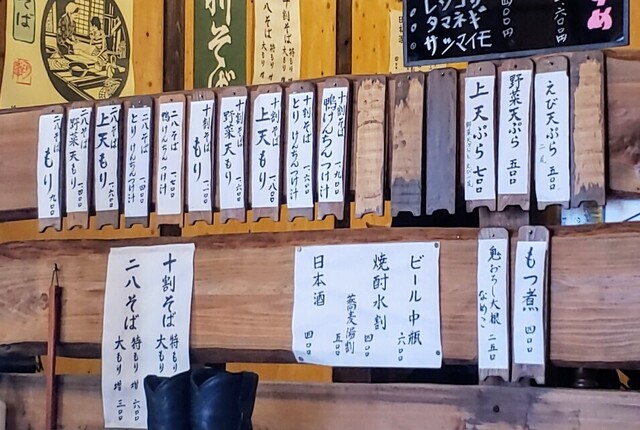 えび天ぷら 五〇〇
二尾
野菜天ぷら 五〇〇
上天ぷら 七〇〇
十割そば 鴨けんちんつけ汁 一、九〇〇
十割そば とりけんちんつけ汁 一、六〇〇
十割そば 上天もり 一、八〇〇
十割そば 野菜天もり 一、六〇〇
十割そば もり 一、一〇〇
二八そば 鴨けんちんつけ汁 一、七〇〇
二八そば とりけんちんつけ汁 一、四〇〇
二八そば 上天もり 一、六〇〇
二八そば 野菜天もり
二八そば もり 九〇〇
もつ煮 四〇〇
鬼おろし大根 なめこ 二五〇
ビール中瓶 六〇〇
焼酎水割 四〇〇
蕎麦湯割 五〇〇
日本酒 四〇〇
十割そば 特もり 大もり
二八そば 特もり 増 六〇〇
大もり 増 三〇〇
タマネギ
サツマイモ
割そば
そば
十割そば
大もり